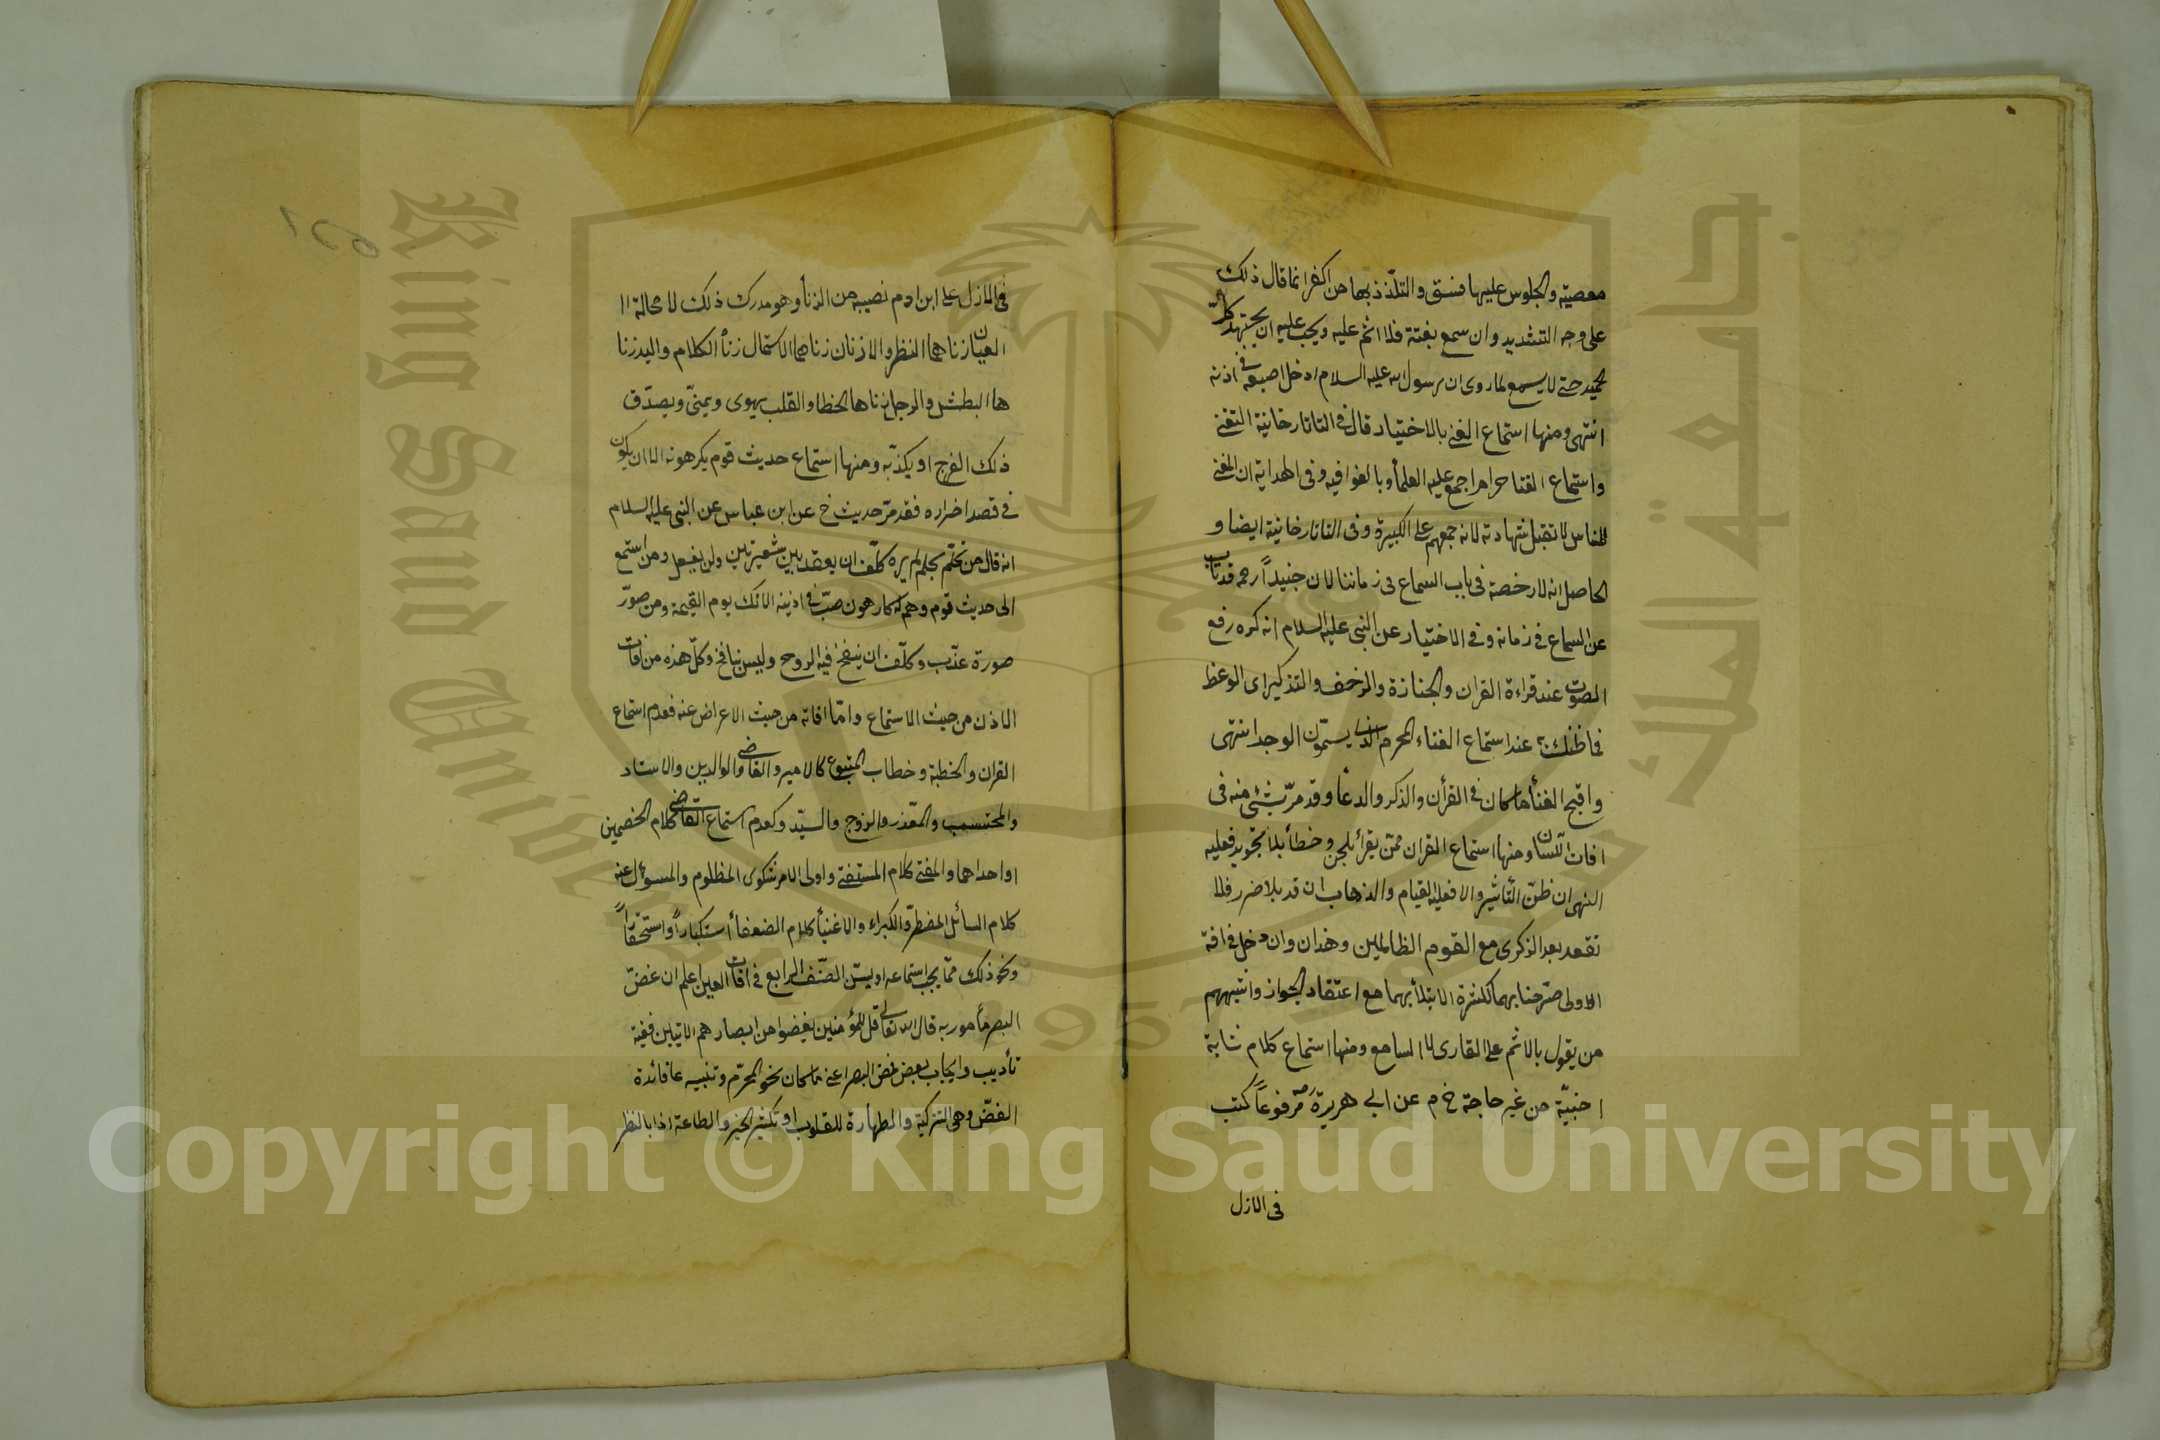 معصية والجلوس عليها فسق والتلذذ بها من الكفر انما قال ذلك
على وجه التشديد وان سمع بغتة فلا اثم عليه ويجب عليه ان يجتهد كل
الجهد حتى لا يسمع لما روى ان رسول الله عليه السلام ادخل اصبعه في اذنه
انتهى ومنها استماع الغنى بالاختيار قال في التاتارخانية التغنى
واستماع الغنا حرام اجمع عليه العلمأ وبالغوا فيه وفى الهداية ان المغنى
للناس لا تقبل شهادته لانه جمعهم على الكبيرة وفى التاتارخانية ايضا و
الحاصل انه لا رخصة في باب السماع فى زماننا لان جنيداً رحمه قد تاب
عن السماع في زمانه وفى الاختيار عن النبى عليه السلام انه كره رفع
الصوت عند قراءة القران والجنازة والزحف والتذكير اى الوعظ
فما ظنك عند استماع الغناء المحرم الذى يسمّون الوجد انتهى
واقبح الغنأ ما كان في القرأن والذكر والدعأ وقد مرّ شئ منه فى
افات اللّسان ومنها استماع القران ممن يقرأ بلحن وخطأ بلا تجويد فعليه
النهى ان ظنّ التأثير والا فعليه القيام والذهاب ان قدر بلا ضرر فلا
تقعد بعد الذكرى مع القوم الظالمين وهذان وان دخل في افة
الاولى صرّحنا بهما لكثرة الابتلأ بهما مع اعتقاد الجواز واشبههم
من يقول بالاثم على القارى لا السامع ومنها استماع كلام شابة
اجنبيّة من غير حاجة خ م عن ابى هريرة مرفوعاً كتب
فى الازل
فى الازل على ابن ادم نصيبه من الزنأ وهو مدرك ذلك لا محالة ا
العينان زناهما النظر والاذنان زناهما الاستماع زنأ الكلام واليد زنا
ها البطش والرجل زناها الخطا والقلب يهوى ويمنىّ ويصدّق
ذلك الفرج او يكذّبه ومنها استماع حديث قوم يكرهونه الا ان يكون
في قصد اضراره فقد مرّ حديث خ عن ابن عباس عن النبى عليه السلام
انه قال من تحلّم بحلم لم يره كلّف ان يعقد بين شعيرتين ولن يفعل ومن استمع
الى حديث قوم وهم له كارهون صبّ في اذينه الانك يوم القيمة ومن صوّر
صورة عذّب وكلّف ان ينفخ فيه الروح وليس بنافخ وكلّ هذه من افات
الاذن من حيث الاستماع وامّا افاته من حيث الاعراض عنه فعدم استماع
القران والخطبة وخطاب المتبوع كالامير والقاضى والوالدين والاستاد
والمحتسب والمقدّر والزوج والسيّد وكعدم استماع القاضى كلام الخصمين
او احداهما والمفتى كلام المستفتى واولى الامر شكوى المظلوم والمسؤل عنه
كلام السائل المضطرّ والكبراء والاغنيأ كلام الضعفأ استكباراً واستحقاراً
ونحو ذلك ممّا يجب استماعه او يسنّ الصّنف الرابع في افات العين اعلم ان غضّ
البصر مأمور به قال الله تعالى قل للمؤمنين يغضوا من ابصارهم الايتين ففيه
تأديب وايجاب بعض غض البصر اعنى ما كان نحو المحرّم وتنبيه على فائدة
الغضّ وهى التزكية والطهأرة للقلوب او تكثير الخير والطاعة اذا بالنظر